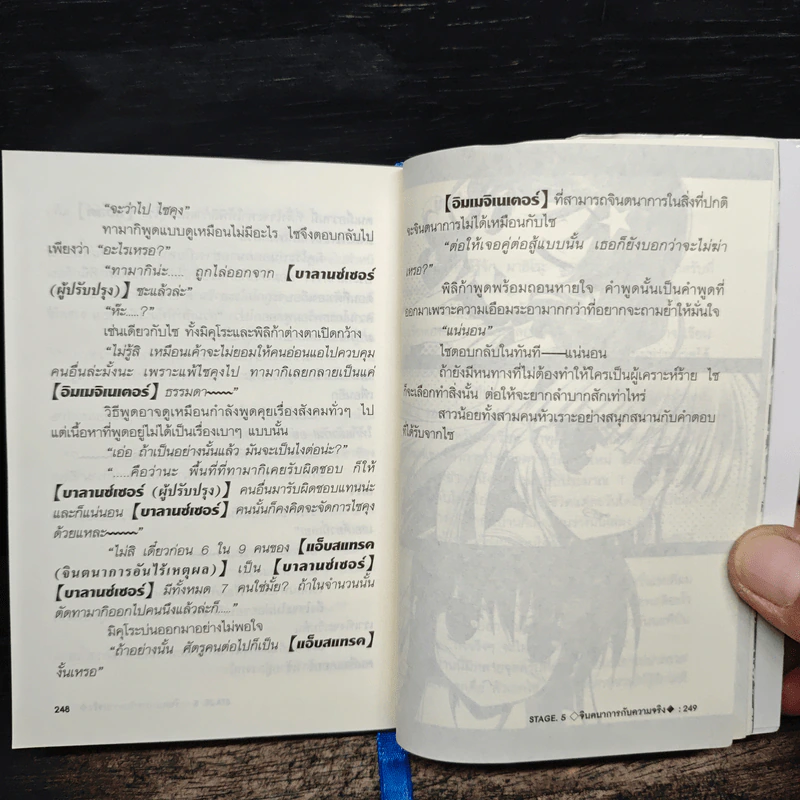 “จะว่าไป ไซคุง”
ทามากิพูดแบบดูเหมือนไม่มีอะไร ไซจึงตอบกลับไป
เพียงว่า “อะไรเหรอ?”
“ทามากิน่ะ..... ถูกไล่ออกจาก【บาลานซ์เซอร์
(ผู้ปรับปรุง)】ซะแล้วล่ะ”
“ห๊ะ.....?”
เช่นเดียวกับไซ ทั้งมิคุโระและพิลิก้าต่างตาเปิดกว้าง
“ไม่รู้สิ เหมือนเค้าจะไม่ยอมให้คนอ่อนแอไปควบคุม
คนอื่นล่ะมั้งนะ เพราะแพ้ไซคุงไป ทามากิเลยกลายเป็นแค่
【อิมเมจิเนเตอร์】ธรรมดา~~~~”
วิธีพูดอาจดูเหมือนกำลังพูดคุยเรื่องสังคมทั่วๆ ไป
แต่เนื้อหาที่พูดอยู่ไม่ได้เป็นเรื่องเบาๆ แบบนั้น
“เอ่อ ถ้าเป็นอย่างนั้นแล้ว มันจะเป็นไงต่อน่ะ?”
“.....คือว่านะ พื้นที่ที่ทามากิเคยรับผิดชอบ ก็ให้
【บาลานซ์เซอร์ (ผู้ปรับปรุง)】คนอื่นมารับผิดชอบแทนน่ะ
และก็แน่นอน【บาลานซ์เซอร์】คนนั้นก็คงคิดจะจัดการไซคุง
ด้วยแหละ~~~~”
“ไม่สิ เดี๋ยวก่อน 6 ใน 9 คนของ【แอ็บสแทรค
(จินตนาการอันไร้เหตุผล)】เป็น【บาลานซ์เซอร์】
【บาลานซ์เซอร์】มีทั้งหมด 7 คนใช่มั้ย? ถ้าในจำนวนนั้น
ตัดทามากิออกไปคนนึงแล้วล่ะก็.....”
มิคุโระบ่นออกมาอย่างไม่พอใจ
“ถ้าอย่างนั้น ศัตรูคนต่อไปก็เป็น【แอ็บสแทรค】
งั้นเหรอ”
248
【อิมเมจิเนเตอร์】ที่สามารถจินตนาการในสิ่งที่ปกติ
จะจินตนาการไม่ได้เหมือนกับไซ
“ต่อให้เจอคู่ต่อสู้แบบนั้น เธอก็ยังบอกว่าจะไม่ฆ่า
เหรอ?”
พิลิก้าพูดพร้อมถอนหายใจ คำพูดนั้นเป็นคำพูดที่
ออกมาเพราะความเอือมระอามากกว่าที่อยากจะถามย้ำให้มั่นใจ
“แน่นอน”
ไซตอบกลับในทันที──แน่นอน
ถ้ายังมีหนทางที่ไม่ต้องทำให้ใครเป็นผู้เคราะห์ร้าย ไซ
ก็จะเลือกทำสิ่งนั้น ต่อให้จะยากลำบากสักเท่าไหร่
สาวน้อยทั้งสามคนหัวเราะอย่างสนุกสนานกับคำตอบ
ที่ได้รับจากไซ
STAGE. 5 ◇จินตนาการกับความจริง◆ : 249